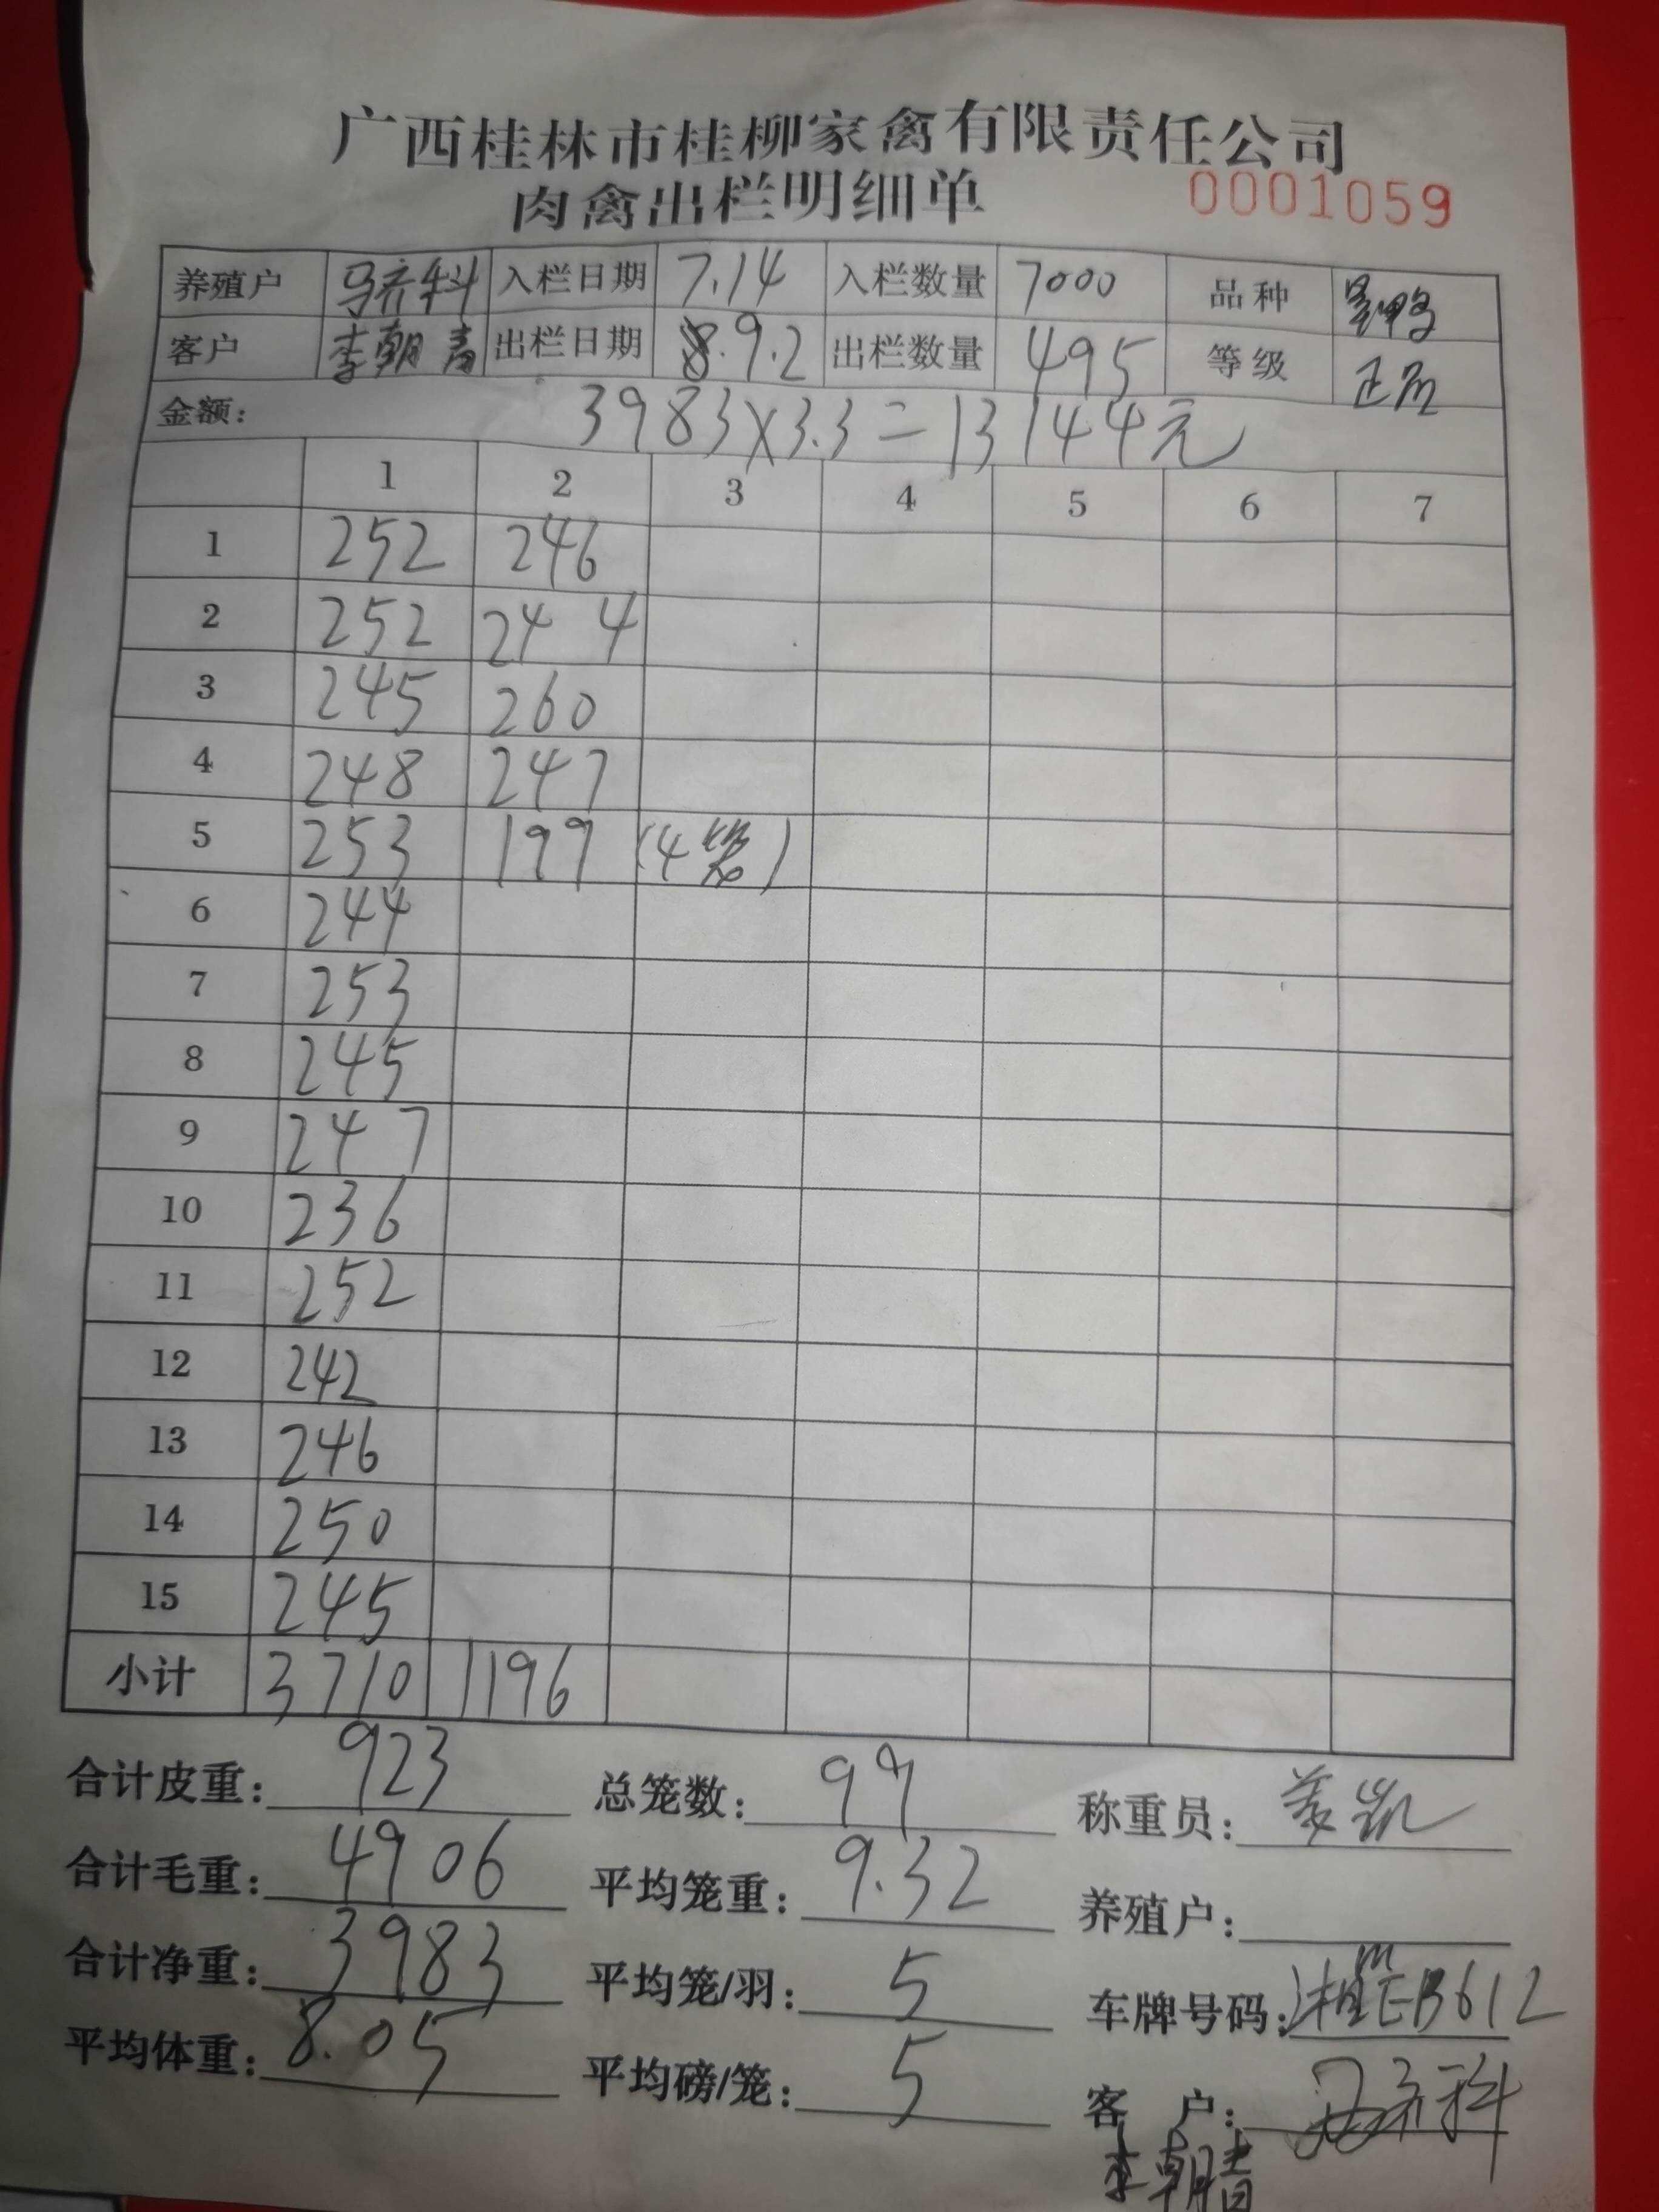 广西桂林市桂柳家禽有限责任公司
肉禽出栏明细单 0001059
养殖户 齐科 入栏日期 7.14 入栏数量 7000 品种
客户 李朝青 出栏日期 9.2 出栏数量 495 等级 正品
金额: 3983×3.3=13144元
1 2 3 4 5 6 7
1 252 246
2 252 244
3 245 260
4 248 247
5 253 199 (4笼)
6 244
7 253
8 245
9 247
10 236
11 252
12 242
13 246
14 250
15 245
小计 3710 1196
合计皮重: 923 总笼数: 99 称重员:
合计毛重: 4906 平均笼重: 9.32 养殖户:
合计净重: 3983 平均笼/羽: 5 车牌号码: 湘EB612
平均体重: 8.05 平均磅/笼: 5 客 户: 齐科
李朝青